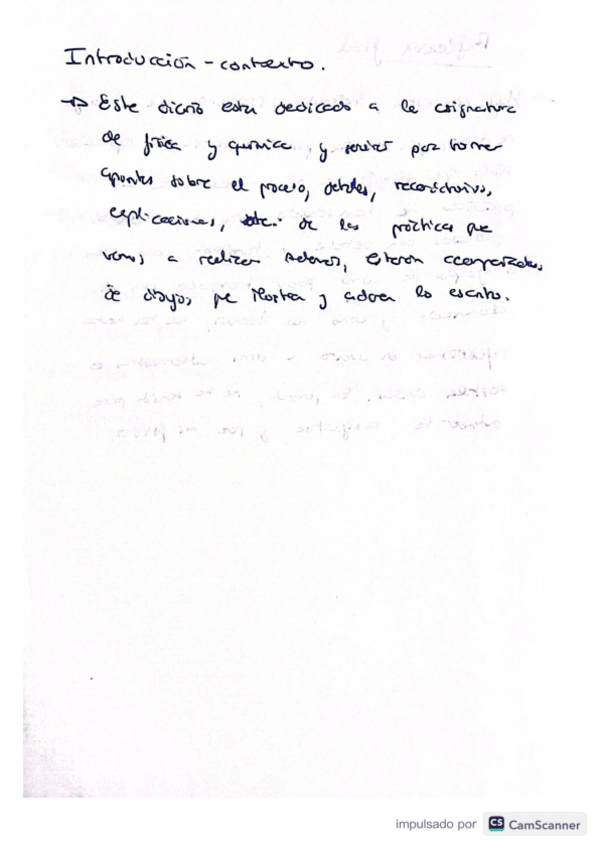 Introducción - contexto.
→ Este diario esta dedicado a la asignatura
de física y química, y servirá para tomar
apuntes sobre el proceso, detalles,
explicaciones, etc. de las prácticas que
vamos a realizar. Además, estarán acompañadas,
de dibujos, que ilustren y adornen lo escrito.
impulsado por CS CamScanner